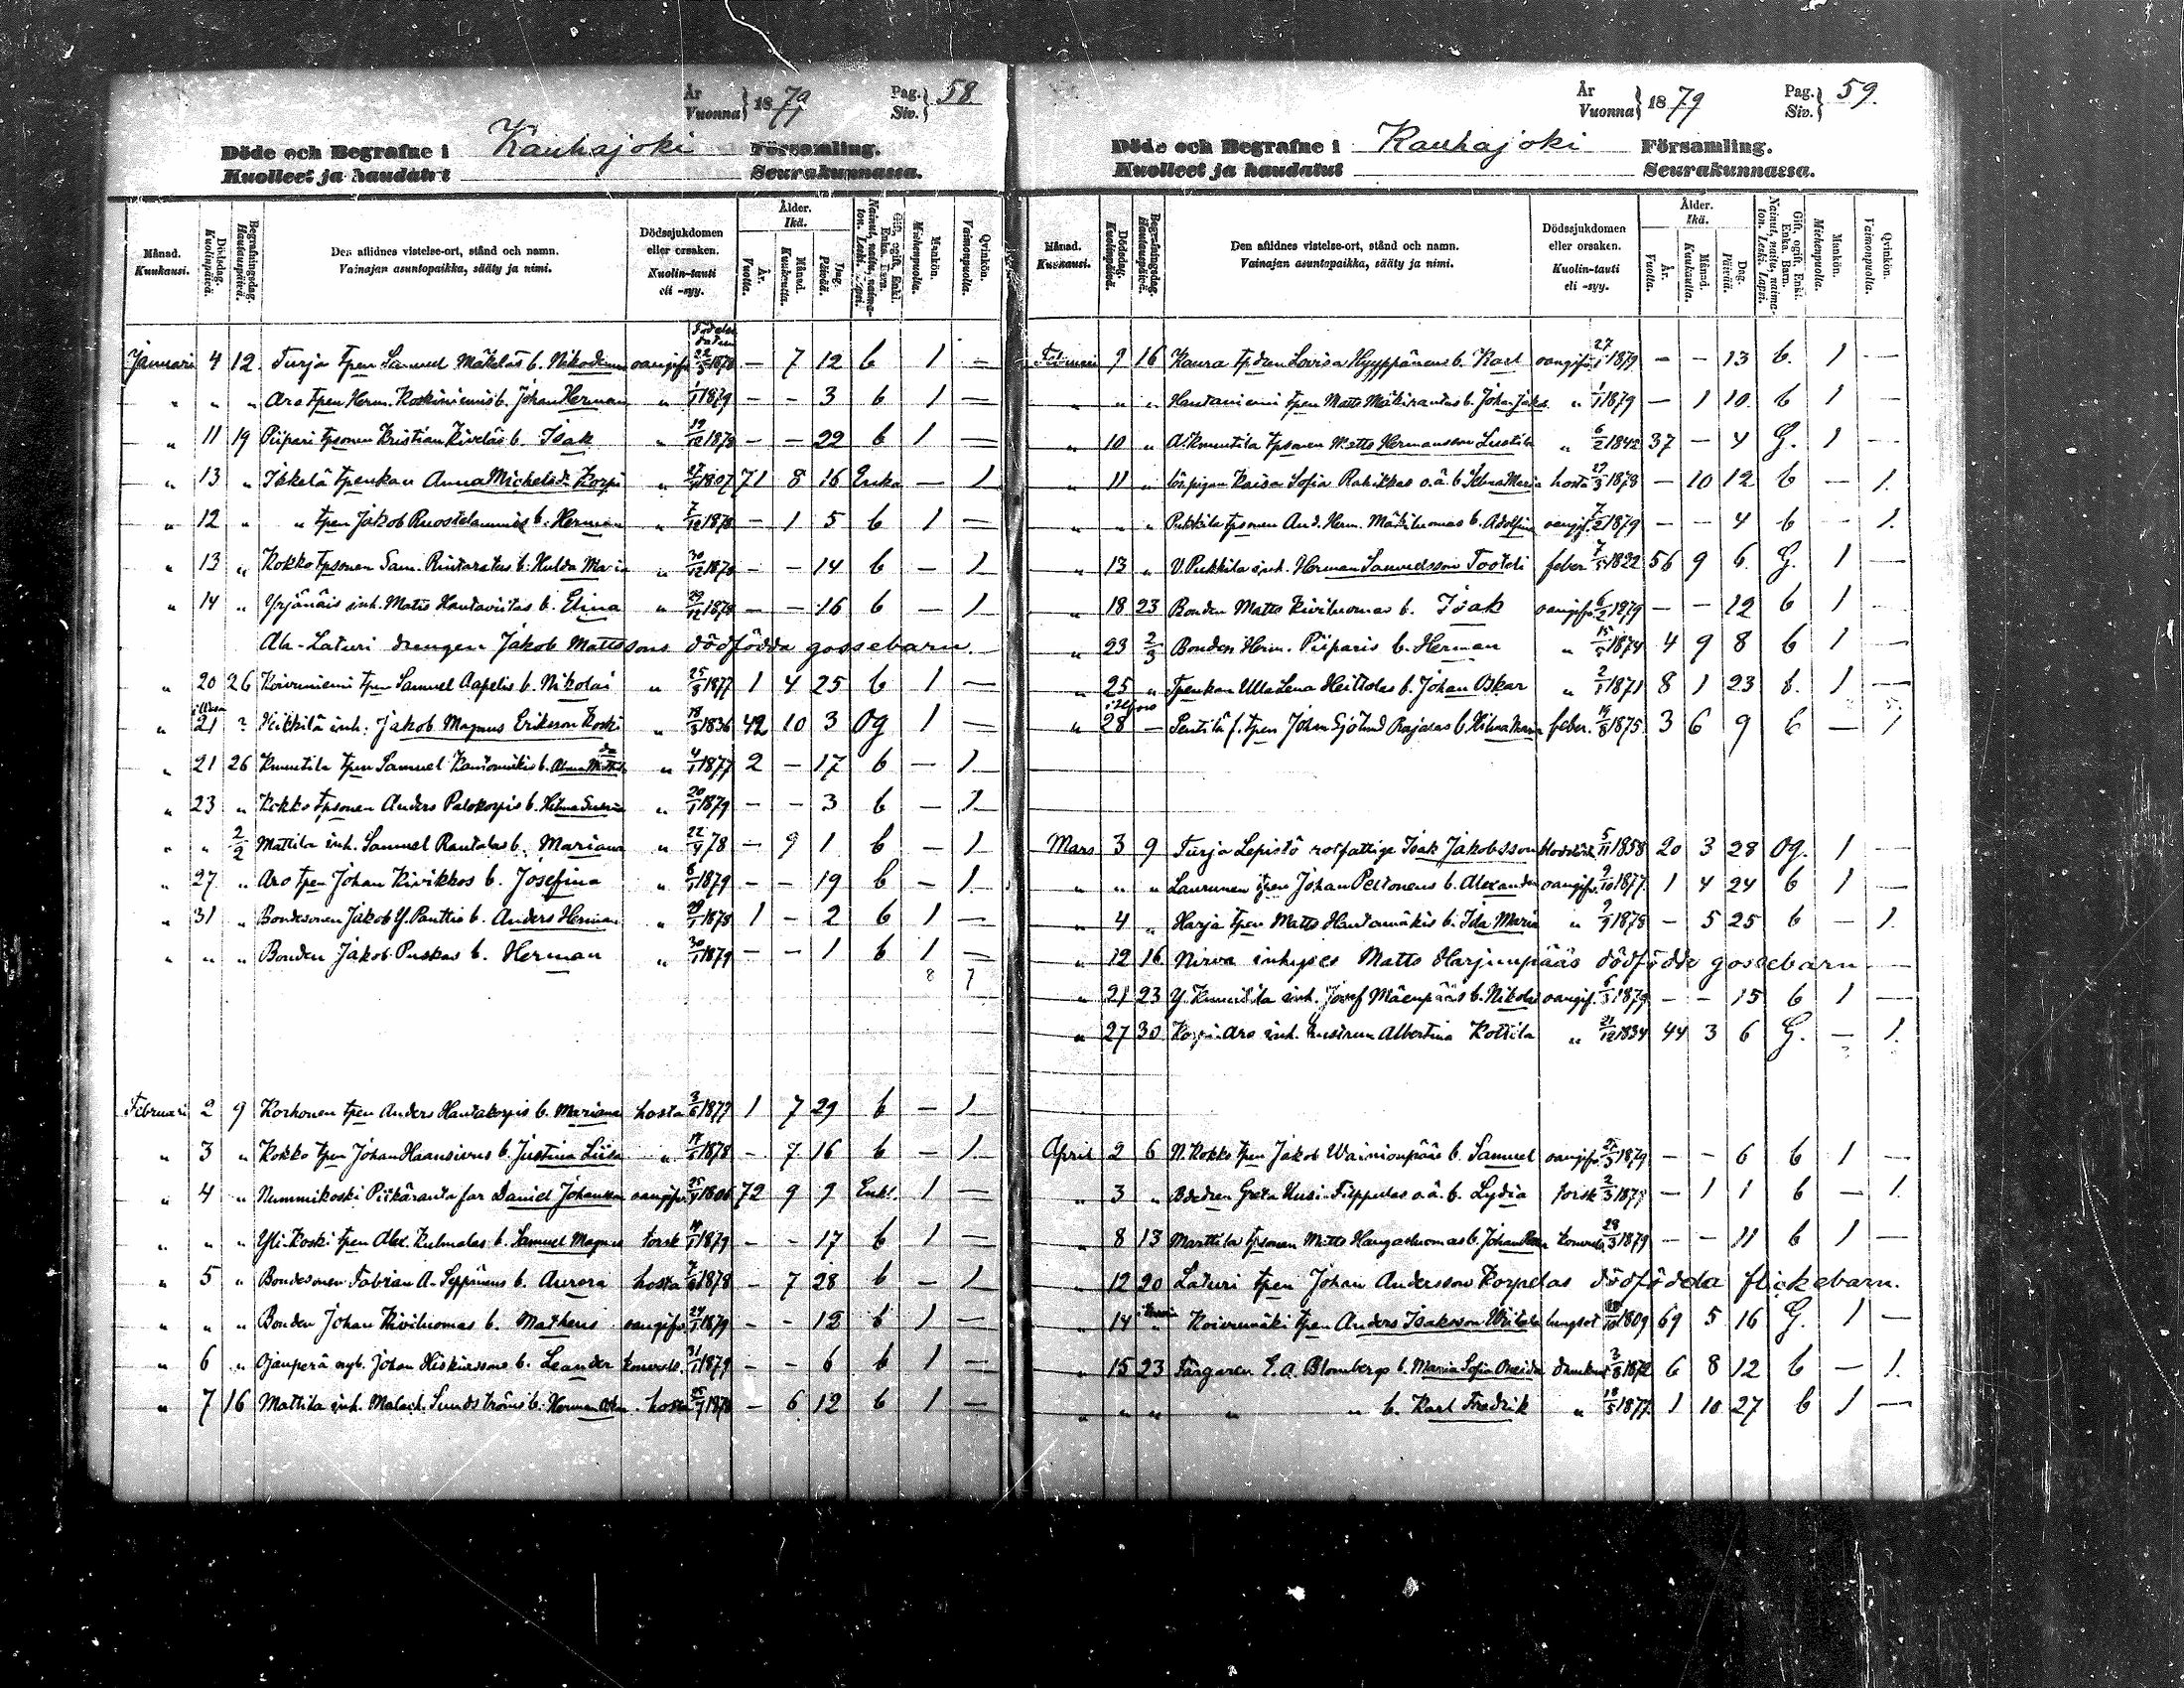 År
Vuonna } 1879 Pag. Siv. } 58
Döde och Begrafne i Kauhajoki Församling.
Kuolleet ja haudatut Seurakunnassa.
Månad. Kuukausi. Dödsdag. Kuolinpäivä. Begrafningsdag. Hautauspäivä. Den aflidnes vistelse-ort, stånd och namn. Vainajan asuntopaikka, sääty ja nimi. Dödssjukdomen eller orsaken. Kuolin-tauti eli -syy. Ålder. Ikä. År. Vuotta. Månad. Kuukautta. Dag. Päivää. Gift, ogift, Enkl. Enka. Barn. Nainut, naitu, naimaton. Leski. Lapsi. Mankön. Miehenpuolta. Qvinkön. Vaimonpuolta.
Januari 4 12 Turja tpen Samuel Mäkeläs b. Nikodemus oangifv. 1878 — 7 12 b 1 —
" " " Aro tpen Herm. Koskiniemis b. Johan Herman " 1/1 1879 — — 3 b 1 —
" 11 19 Piipari tpsonen Kristian Kiveläs b. Isak " 19/12 1878 — — 22 b 1 —
" 13 " Ikkelä tpenkan Anna Michelsdr Korpi " 1807 71 8 16 Enka — 1
" 12 " " tpen Jakob Ruostelanmis b. Herman " 7/12 1878 — 1 5 b 1 —
" 13 " Kokko tpsonen Sam. Rintaratas b. Hulda Maria " 30/12 1878 — — 14 b — 1
" 14 " Yrjänäis inh. Matts Hautaviitas b. Elina " 29/12 1878 — — 16 b — 1
Ala-Laturi drengen Jakob Mattssons dödfödda gossebarn. —
" 20 26 Koivuniemi tpen Samuel Aapelis b. Nikolai " 25/8 1877 1 4 25 b 1 —
" 21 ? Heikkilä inh. Jakob Magnus Eriksson Koski " 18/3 1836 42 10 3 Og 1 —
" 21 26 Knuutila tpen Samuel Kantomäkis b. " 4/1 1877 2 — 17 b — 1
" 23 " Kokko tpsonen Anders Palokorpis b. Hilma " 20/1 1879 — — 3 b — 1
" " 2/2 Mattila inh. Samuel Rantalas b. Mariana " 22/4 78 — 9 1 b — 1
" 27 " Aro tpen Johan Kivikkos b. Josefina " 8/1 1879 — — 19 b — 1
" 31 " Bondesonen Jakob Y. Panttis b. Anders Herman " 29/1 1878 1 — 2 b 1 —
" " " Bonden Jakob Puskas b. Herman " 30/1 1879 — — 1 b 1 —
8 7
Februari 2 9 Korhonen tpen Anders Hautakorpis b. Mariana hosta 3/6 1877 1 7 29 b — 1
" 3 " Kokko tpen Johan Haansivus b. Justina Liisa " 1878 — 7 16 b — 1
" 4 " Nummikoski Pitkäranta far Daniel Johansson oangifv. 25/4 1806 72 9 9 Enkl. 1 —
" " " Yli Koski tpen Alex. Kulmalas b. Samuel Magnus torsk 18/1 1879 — — 17 b 1 —
" 5 " Bondesonen Fabian A. Seppänens b. Aurora hosta 7/6 1878 — 7 28 b — 1
" " " Bonden Johan Kiviluomas b. Matheus oangifv. 24/1 1879 — — 12 b 1 —
" 6 " Ojanperä nyb. Johan Hiskiassons b. Leander konvuls. 31/1 1879 — — 6 b 1 —
" 7 16 Mattila inh. Malach. Sundströms b. Herman hosta 25/7 1878 — 6 12 b 1 —
År
Vuonna } 1879 Pag. Siv. } 59.
Döde och Begrafne i Kauhajoki Församling.
Kuolleet ja haudatut Seurakunnassa.
Månad. Kuukausi. Dödsdag. Kuolinpäivä. Begrafningsdag. Hautauspäivä. Den aflidnes vistelse-ort, stånd och namn. Vainajan asuntopaikka, sääty ja nimi. Dödssjukdomen eller orsaken. Kuolin-tauti eli -syy. Ålder. Ikä. År. Vuotta. Månad. Kuukautta. Dag. Päivää. Gift, ogift, Enkl. Enka. Barn. Nainut, naitu, naimaton. Leski. Lapsi. Mankön. Miehenpuolta. Qvinkön. Vaimonpuolta.
Februari 9 16 Kaura tp.dan Lovisa Hyyppänens b. Karl oangifv. 27/1 1879 — — 13 b. 1 —
" " " Hautaniemi tpen Matts Mäkirantas b. Johan Jakob " 1/1 1879 — 1 10 b 1 —
" 10 " A. Knuutila tpsonen Matts Hermansson Luotila " 6/2 1842 37 — 4 G. 1 —
" 11 " Kaisa Sofia Rahikkas o.ä. b. Selma Maria hosta 29/3 1878 — 10 12 b — 1.
" " " Pukkila tpsonen And. Herm. Mäkiluomas b. Adolfina oangif. 7/2 1879 — — 4 b — 1.
" 13 " V. Pukkila inh. Herman Samuelsson Tooteli feber 7/5 1822 56 9 6 G. 1 —
" 18 23 Bonden Matts Kiviluomas b. Isak oangifv. 6/2 1879 — — 12 b 1 —
" 23 2/3 Bonden Herm. Piiparis b. Herman " 15/5 1874 4 9 8 b 1 —
" 25 " Tpenkan Ulla Lena Heikkilas b. Johan Oskar " 2/1 1871 8 1 23 b. 1 —
" 28 — Pentilä f. tpen Johan Sjölund Rajalas b. Hilma Maria feber. 19/8 1875 3 6 9 b — 1
Mars 3 9 Turja Lepistö rotfattige Isak Jakobsson 5/11 1858 20 3 28 Og. 1 —
" " " Laurunen tpen Johan Peltonens b. Alexander oangifv. 9/10 1877 1 4 24 b 1 —
" 4 " Harja tpen Matts Hautamäkis b. Ida Maria " 9/9 1878 — 5 25 b — 1.
" 12 16 Nirva inhyses Matts Harjunpääs dödfödde gossebarn —
" 21 23 Y. Knuutila inh. Josef Mäenpääs b. Nikolai oangif. 6/3 1879 — — 15 b 1 —
" 27 30 Korpi-Aro inh. hustrun Albertina Kottila " 21/12 1834 44 3 6 G. — 1.
April 2 6 N. Kokko tpen Jakob Wainionpääs b. Samuel oangifv. 1879 — — 6 b 1 —
" 3 " Bdedren Greta Uusi-Filppulas o.ä. b. Lydia torsk 2/3 1879 — 1 1 b — 1.
" 8 13 Marttila tpsonen Matts Hangasluomas b. Johan konvuls. 28/3 1879 — — 11 b 1 —
" 12 20 Laturi tpen Johan Andersson Korpelas dödfödda flickebarn.
" 14 " Koivumäki tpen Anders Isaksson Wiitala lungsot 1809 69 5 16 G. 1 —
" 15 23 Färgaren E. A. Blombergs b. Maria Sofia Oneida 3/8 1872 6 8 12 b — 1.
" " " " " b. Karl Fredrik " 18/5 1877 1 10 27 b 1 —